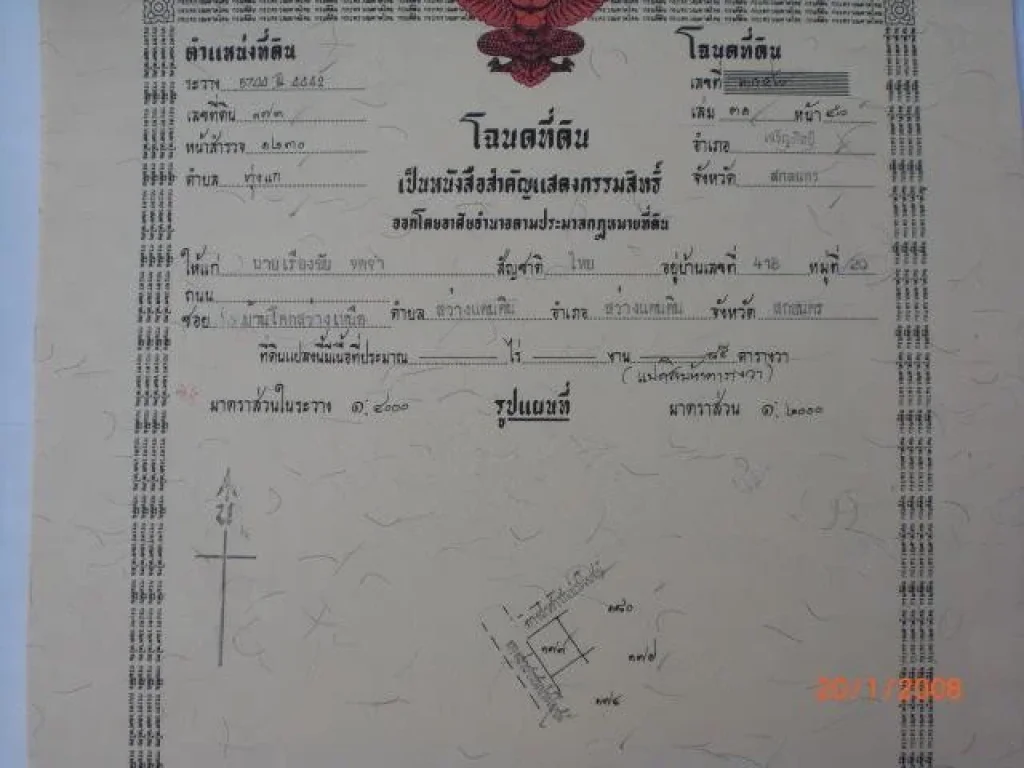 ตำแหน่งที่ดิน
ระวาง 5744 II 4442
เลขที่ดิน ๑๗๓
หน้าสำรวจ ๑๒๓๐
ตำบล ทุ่งแก
โฉนดที่ดิน
เลขที่
เล่ม ๓๑ หน้า ๕๐
อำเภอ เจริญศิลป์
จังหวัด สกลนคร
โฉนดที่ดิน
เป็นหนังสือสำคัญแสดงกรรมสิทธิ์
ออกโดยอาศัยอำนาจตามประมวลกฎหมายที่ดิน
ให้แก่ นายเรืองชัย สัญชาติ ไทย อยู่บ้านเลขที่ 418 หมู่ที่ 20
ถนน
ซอย บ้านโคกสว่างเหนือ ตำบล สว่างแดนดิน อำเภอ สว่างแดนดิน จังหวัด สกลนคร
ที่ดินแปลงนี้มีเนื้อที่ประมาณ ไร่ งาน ๘๕ ตารางวา
(แปดสิบห้าตารางวา)
มาตราส่วนในระวาง ๑:๔๐๐๐ รูปแผนที่ มาตราส่วน ๑:๒๐๐๐
น
๑๘๐
๑๗๓
๑๗๙
๑๗๔
20/1/2008